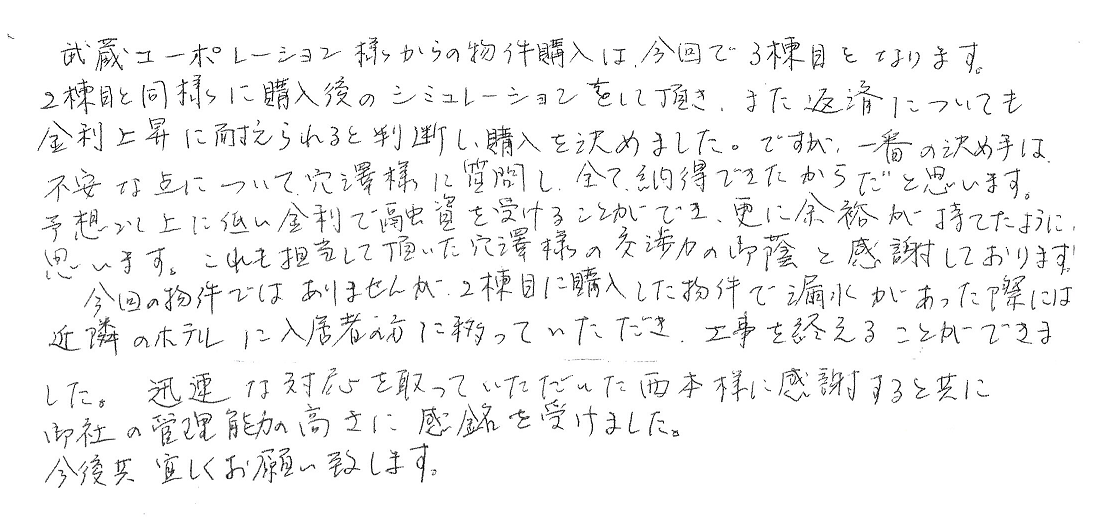 武蔵コーポレーション様からの物件購入は、今回で3棟目となります。
2棟目と同様に購入後のシミュレーションをして頂き、また返済についても
金利上昇に耐えられると判断し、購入を決めました。ですが、一番の決め手は、
不安な点について、穴澤様に質問し、全て納得できたからだと思います。
予想以上に低い金利で融資を受けることができ、更に余裕が持てたように
思います。これも担当して頂いた穴澤様の交渉力の御蔭と感謝しております。
今回の物件ではありませんが、2棟目に購入した物件で漏水があった際には
近隣のホテルに入居者の方に移っていただき、工事を終えることができま
した。迅速な対応を取っていただいた西本様に感謝すると共に
御社の管理能力の高さに感銘を受けました。
今後共宜しくお願い致します。